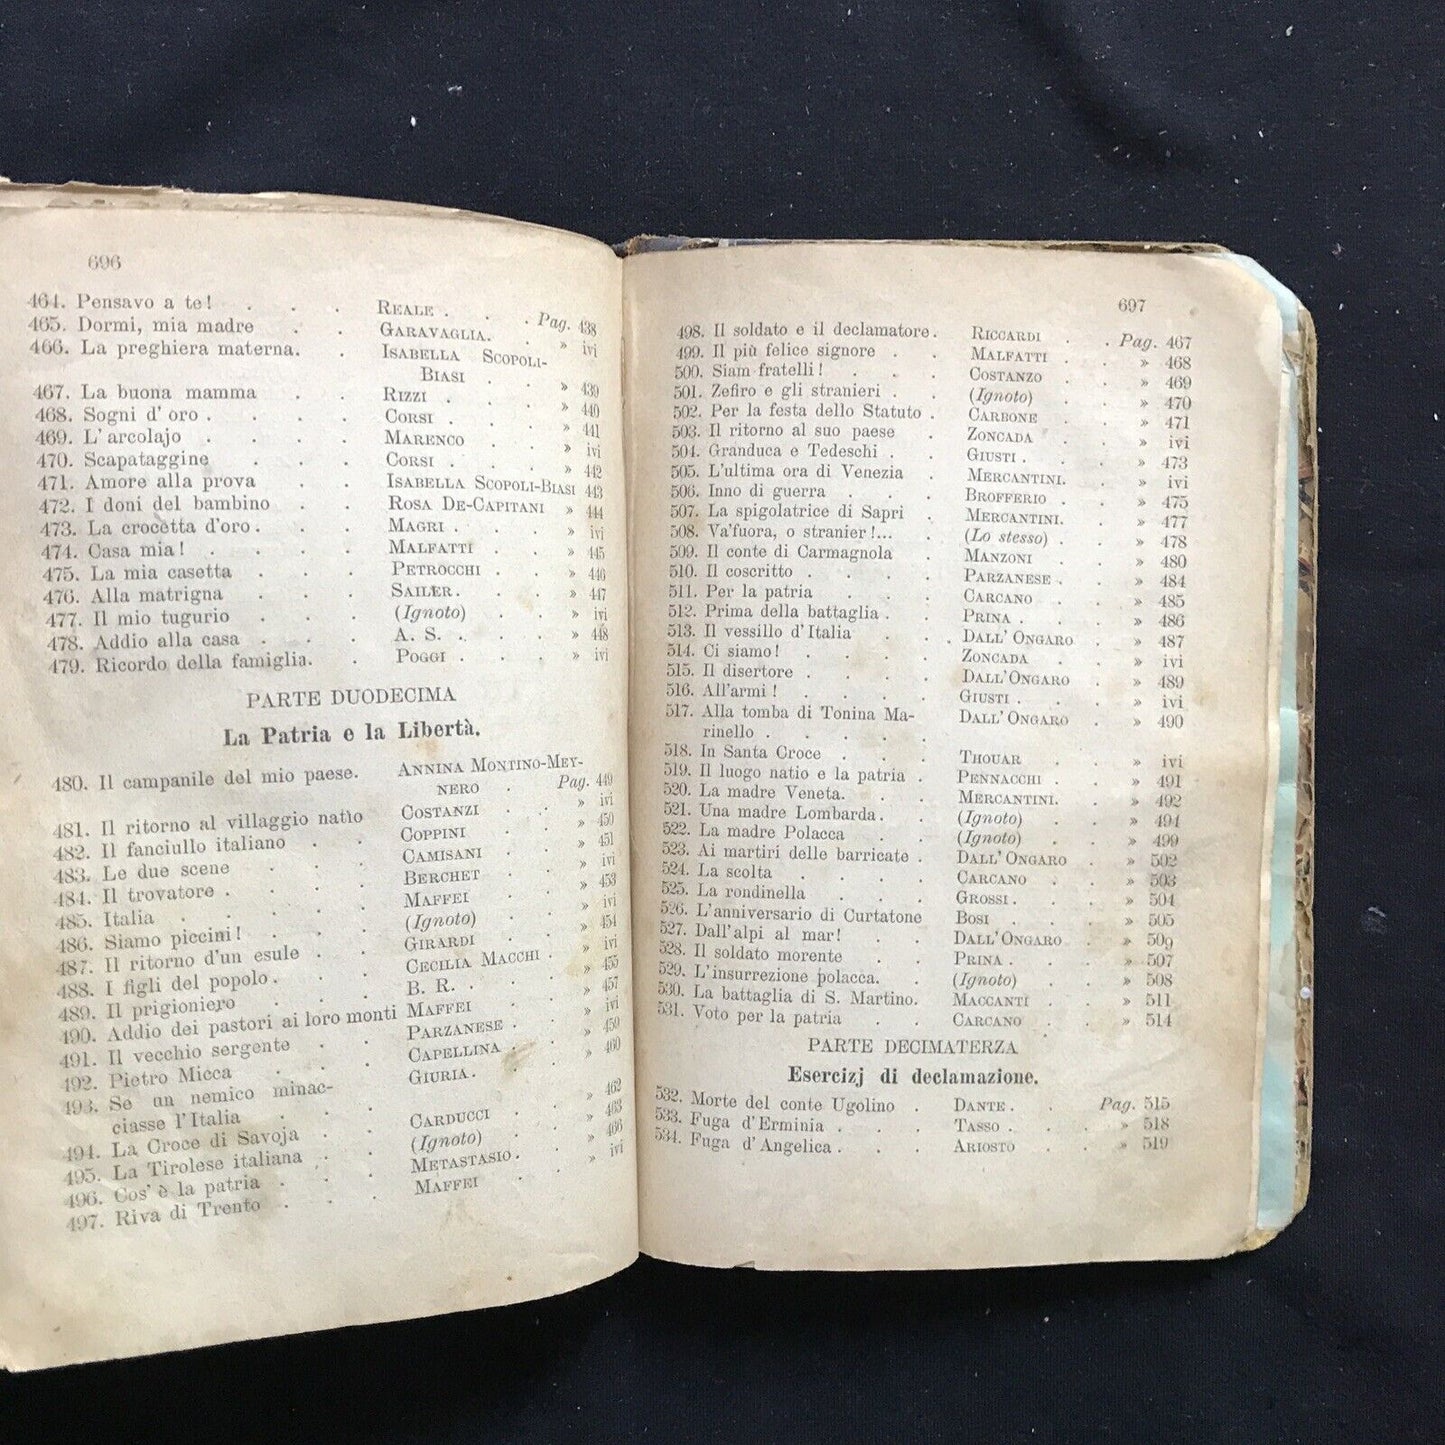 696
464. Pensavo a te! . . . REALE . . Pag. 438
465. Dormi, mia madre . . GARAVAGLIA. . » ivi
466. La preghiera materna. . ISABELLA SCOPOLI-
BIASI . . » 439
467. La buona mamma . . RIZZI . . » 440
468. Sogni d' oro . . . CORSI . . » 441
469. L' arcolajo . . . . MARENCO . . » ivi
470. Scapataggine . . . CORSI . . . » 442
471. Amore alla prova . . ISABELLA SCOPOLI-BIASI 443
472. I doni del bambino . . ROSA DE-CAPITANI » 444
473. La crocetta d'oro . . . MAGRI . . . » ivi
474. Casa mia! . . . . MALFATTI . . » 445
475. La mia casetta . . . PETROCCHI . . » 446
476. Alla matrigna . . . SAILER. . . » 447
477. Il mio tugurio . . . (Ignoto) . . » ivi
478. Addio alla casa . . . A. S. . . . » 448
479. Ricordo della famiglia. . POGGI . . . » ivi
PARTE DUODECIMA
La Patria e la Libertà.
480. Il campanile del mio paese. ANNINA MONTINO-MEY-
NERO . Pag. 449
481. Il ritorno al villaggio natio COSTANZI . . » ivi
482. Il fanciullo italiano . . COPPINI . . » 450
483. Le due scene . . . CAMISANI . . » 451
484. Il trovatore . . . . BERCHET . . » ivi
485. Italia . . . . . MAFFEI . . » 453
486. Siamo piccini! . . . (Ignoto) . . » ivi
487. Il ritorno d'un esule . . GIRARDI . . » 454
488. I figli del popolo . . . CECILIA MACCHI . » ivi
489. Il prigioniero . . . B. R. . . . » 455
490. Addio dei pastori ai loro monti MAFFEI . . » 457
491. Il vecchio sergente . . PARZANESE . . » ivi
492. Pietro Micca . . . CAPELLINA . . » 459
493. Se un nemico minac- GIURIA. . . » 460
ciasse l'Italia . . .
494. La Croce di Savoja . . CARDUCCI . . » 462
495. La Tirolese italiana . . (Ignoto) . . » 463
496. Cos' è la patria . . . METASTASIO. . » 466
497. Riva di Trento . . . MAFFEI . . » ivi
697
498. Il soldato e il declamatore . RICCARDI . . Pag. 467
499. Il più felice signore . . MALFATTI . . » 468
500. Siam fratelli! . . . COSTANZO . . » 469
501. Zefiro e gli stranieri . . (Ignoto) . . » 470
502. Per la festa dello Statuto . CARBONE . . » 471
503. Il ritorno al suo paese . ZONCADA . . » ivi
504. Granduca e Tedeschi . . GIUSTI . . . » 473
505. L'ultima ora di Venezia . MERCANTINI. . » ivi
506. Inno di guerra . . . BROFFERIO . . » 475
507. La spigolatrice di Sapri . MERCANTINI. . » 477
508. Va'fuora, o stranier!... . (Lo stesso) . . » 478
509. Il conte di Carmagnola . MANZONI . . » 480
510. Il coscritto . . . . PARZANESE . . » 484
511. Per la patria . . . CARCANO . . » 485
512. Prima della battaglia . . PRINA . . . » 486
513. Il vessillo d'Italia . . DALL' ONGARO . » 487
514. Ci siamo! . . . . ZONCADA . . » ivi
515. Il disertore . . . . DALL'ONGARO . » 489
516. All'armi! . . . . GIUSTI . . . » ivi
517. Alla tomba di Tonina Ma- DALL' ONGARO . » 490
rinello . . . . .
518. In Santa Croce . . . THOUAR . . » ivi
519. Il luogo natio e la patria . PENNACCHI . . » 491
520. La madre Veneta. . . MERCANTINI. . » 492
521. Una madre Lombarda . . (Ignoto) . . » 494
522. La madre Polacca . . (Ignoto) . . » 499
523. Ai martiri delle barricate . DALL' ONGARO . » 502
524. La scolta . . . . CARCANO . . » 503
525. La rondinella . . . GROSSI . . . » 504
526. L'anniversario di Curtatone BOSI . . . » 505
527. Dall'alpi al mar! . . DALL'ONGARO . » 509
528. Il soldato morente . . PRINA . . . » 507
529. L'insurrezione polacca. . (Ignoto) . . » 508
530. La battaglia di S. Martino. MACCANTI . . » 511
531. Voto per la patria . . CARCANO . . » 514
PARTE DECIMATERZA
Esercizj di declamazione.
532. Morte del conte Ugolino . DANTE . . Pag. 515
533. Fuga d'Erminia . . . TASSO . . . » 518
534. Fuga d'Angelica . . . ARIOSTO . . » 519